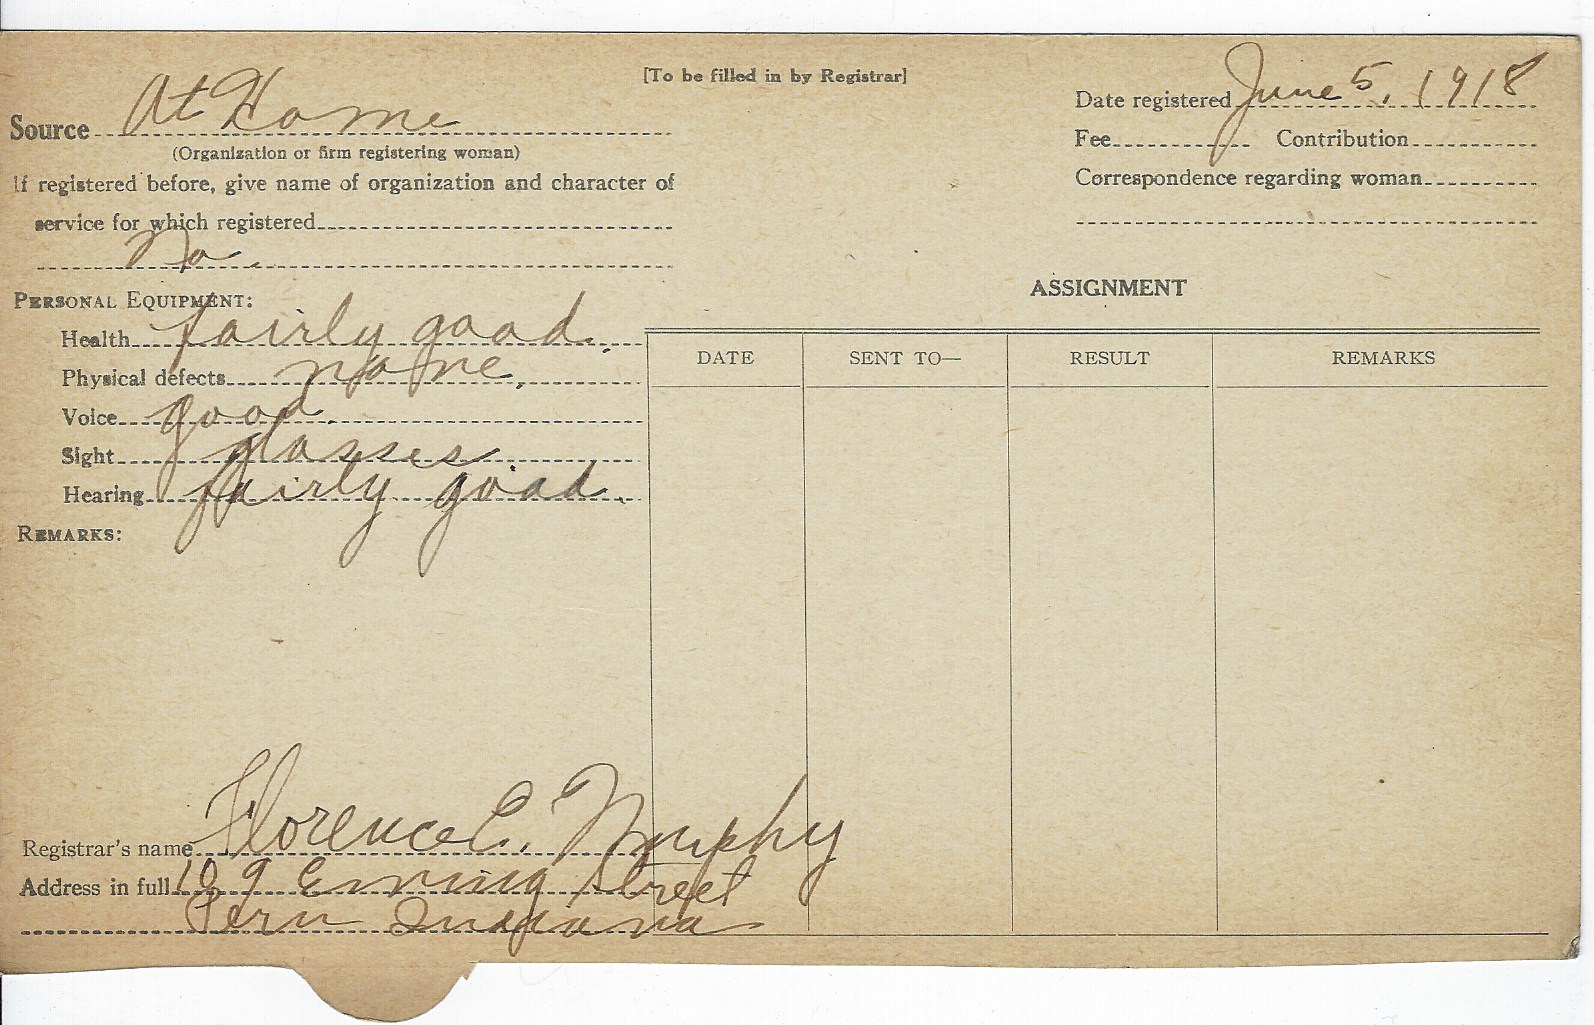 [To be filled in by Registrar]
Source At Home
(Organization or firm registering woman)
If registered before, give name of organization and character of
service for which registered
No.
Date registered June 5, 1918
Fee Contribution
Correspondence regarding woman
PERSONAL EQUIPMENT:
Health fairly good.
Physical defects none,
Voice good.
Sight glasses
Hearing fairly good.
REMARKS:
ASSIGNMENT
DATE SENT TO— RESULT REMARKS
Registrar's name Florence C. Murphy
Address in full 109 Ewing Street
Peru Indiana